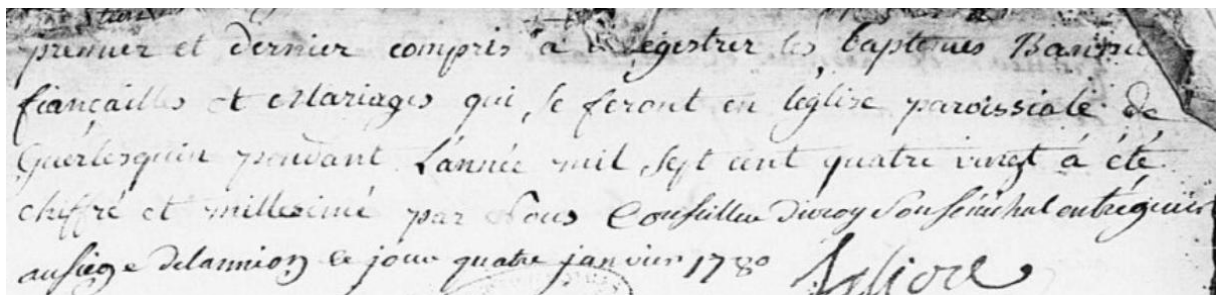 premier et dernier compris a enregistrer les baptemes Bannies
fiançailles et Mariages qui se feront en léglise paroissiale de
Guerlesquin pendant L'année mil sept cent quatre vingt à été
chiffré et millesimé par Nous Conseiller du roy Son sénéchal en tréguier
au siege de lannion ce jour quatre janvier 1780